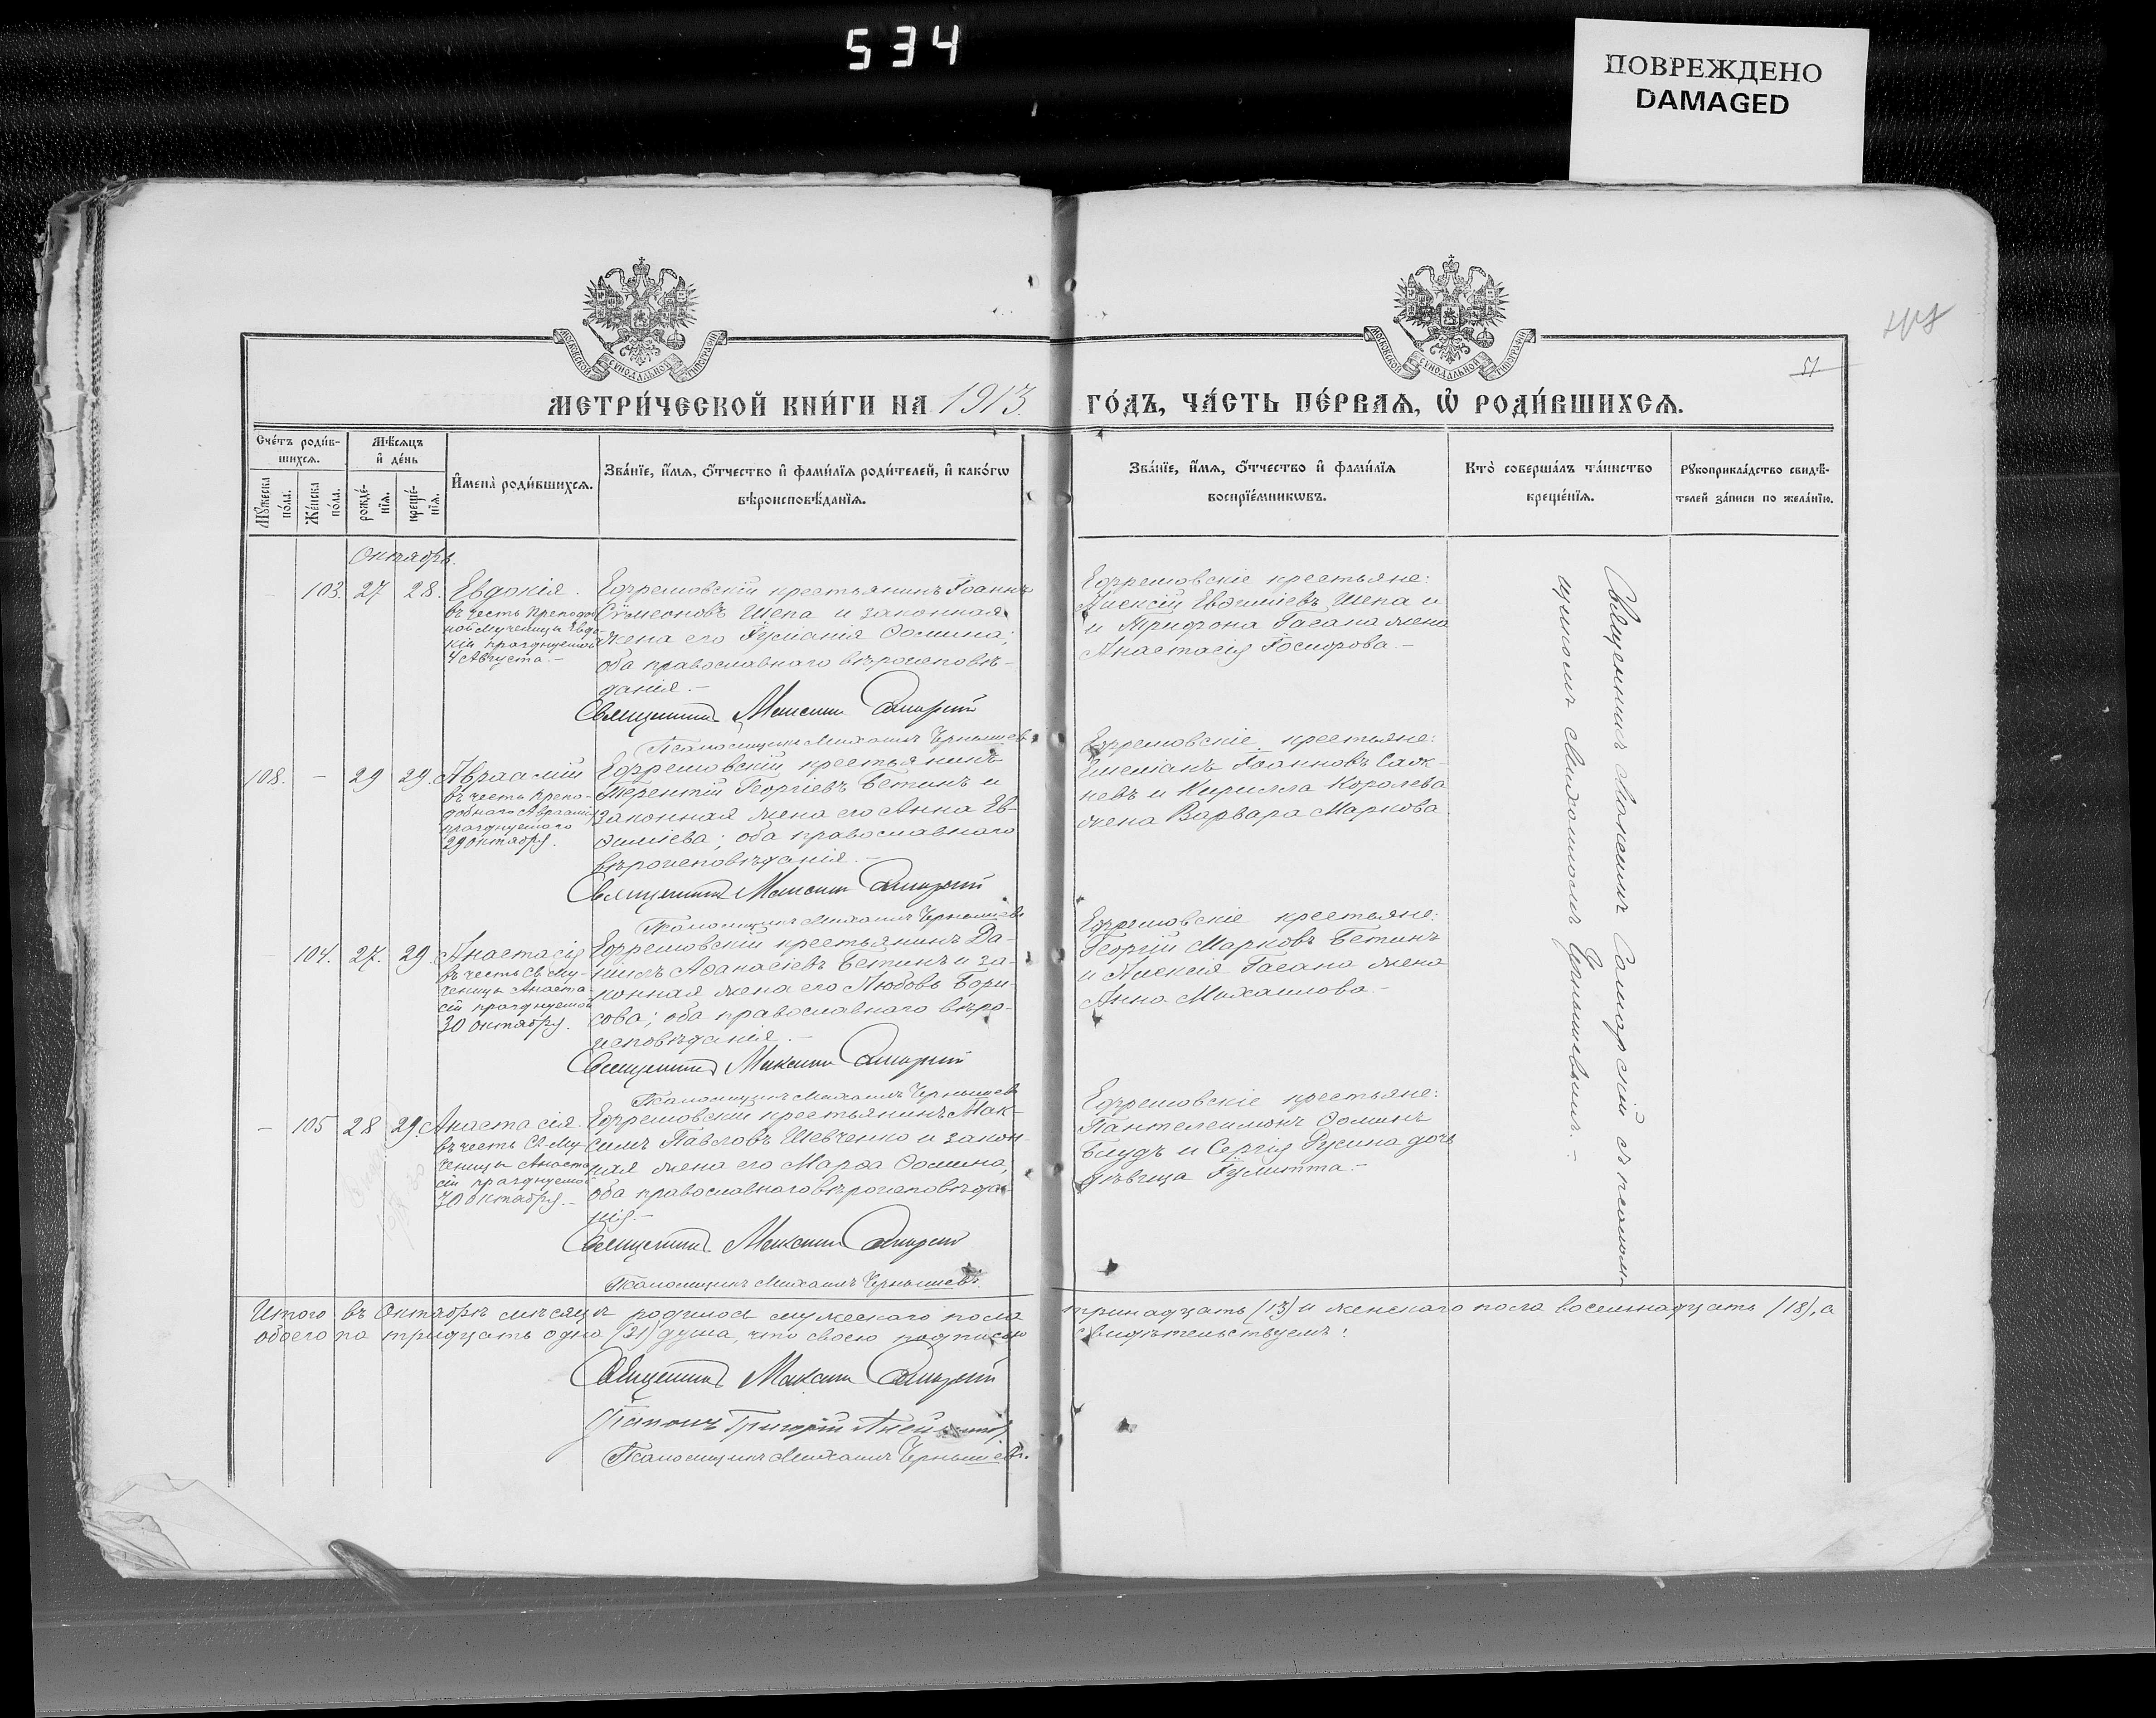 534
ПОВРЕЖДЕНО
DAMAGED
МОСКОВСКОЙ СѴНОДАЛЬНОЙ ТИПОГРАФІИ
МОСКОВСКОЙ СѴНОДАЛЬНОЙ ТИПОГРАФІИ
51
МЕТРИ́ЧЕСКОЙ КНИ́ГИ НА 1913. ГО́ДЪ, ЧА́СТЬ ПЕ́РВАѦ, Ѡ҆ РОДИ́ВШИХСѦ.
Сче́тъ роди́в-
шихсѧ.
Мꙋ́жеска по́ла.
Же́нска по́ла.
Мѣ́сѧцъ
и҆ де́нь
рожде́-
нїѧ.
креще́-
нїѧ.
И҆мена̀ роди́вшихсѧ.
Зва́нїе, и҆́мѧ, ѻ҆́тчество и҆ фами́лїѧ роди́телей, и҆ како́гѡ
вѣроисповѣ́данїѧ.
Зва́нїе, и҆́мѧ, ѻ҆́тчество и҆ фами́лїѧ
воспрїе́мникѡвъ.
Кто̀ соверша́лъ та́инство
креще́нїѧ.
Рꙋкоприкла́дство свидѣ́-
телей за́писи по жела́нїю.
Октябрь.
103. 27 28. Евдокія.
въ честь преподоб-
ной мученицы Евдо-
кіи празднуемой
4 Августа. –
Ефремовскій крестьянинъ Іоаннъ
Сѵмеоновъ Шепа и законная
жена его Іуліанія Ѳомина;
оба православнаго вѣроисповѣ-
данія. –
Священникъ Максимъ Самарскій
Псаломщикъ Михаилъ Чернышевъ
Ефремовскіе крестьяне:
Алексій Евѳиміевъ Шепа и
и Трифона Гасана жена
Анастасія Іосифова. –
108. – 29 29. Авраамій
въ честь препо-
добнаго Авраамія
празднуемаго
29 октября.
Ефремовскій крестьянинъ
Терентій Георгіевъ Бетинъ и
законная жена его Анна Ев-
ѳиміева; оба православнаго
вѣроисповѣданія. –
Священникъ Максимъ Самарскій
Псаломщикъ Михаилъ Чернышевъ
Ефремовскіе крестьяне:
Іоанновъ
и Кирилла Королева
жена Варвара Маркова
104. 27. 29. Анастасія
въ честь Св. Му-
ченицы Анаста-
сіи празднуемой
30 октября.
Ефремовскій крестьянинъ Да-
ніилъ Аѳанасіевъ Бетинъ и за-
конная жена его Любовь Бори-
сова; оба православнаго вѣро-
исповѣданія. –
Священникъ Максимъ Самарскій
Псаломщикъ Михаилъ Чернышевъ
Ефремовскіе крестьяне:
Георгій Марковъ Бетинъ
и Алексія Гасана жена
Анна Михаилова. –
– 105 28 29. Анастасія.
въ честь Св. Му-
ченицы Анаста-
сіи празднуемой
30 октября. –
Ефремовскій крестьянинъ Мак-
симъ Павловъ Шевченко и закон-
ная жена его Марѳа Ѳомина;
оба православнаго вѣроисповѣда-
нія. –
Священникъ Максимъ Самарскій
Псаломщикъ Михаилъ Чернышевъ.
Ефремовскіе крестьяне:
Пантелеимонъ Ѳоминъ
Блудъ и Сергія Русина дочь
дѣвица Іулитта. –
Священникъ Максимъ Самарскій съ псалом-
щикомъ Михаиломъ Чернышевымъ. –
Итого въ Октябрѣ мѣсяцѣ родилось мужескаго пола тринадцать (13) и женскаго пола восемнадцать (18), а
обоего па тридцать одна (31) душа, что своею подписью свидѣтельствуемъ:
Священникъ Максимъ Самарскій
Діаконъ Григорій
Псаломщикъ Михаилъ Чернышевъ.